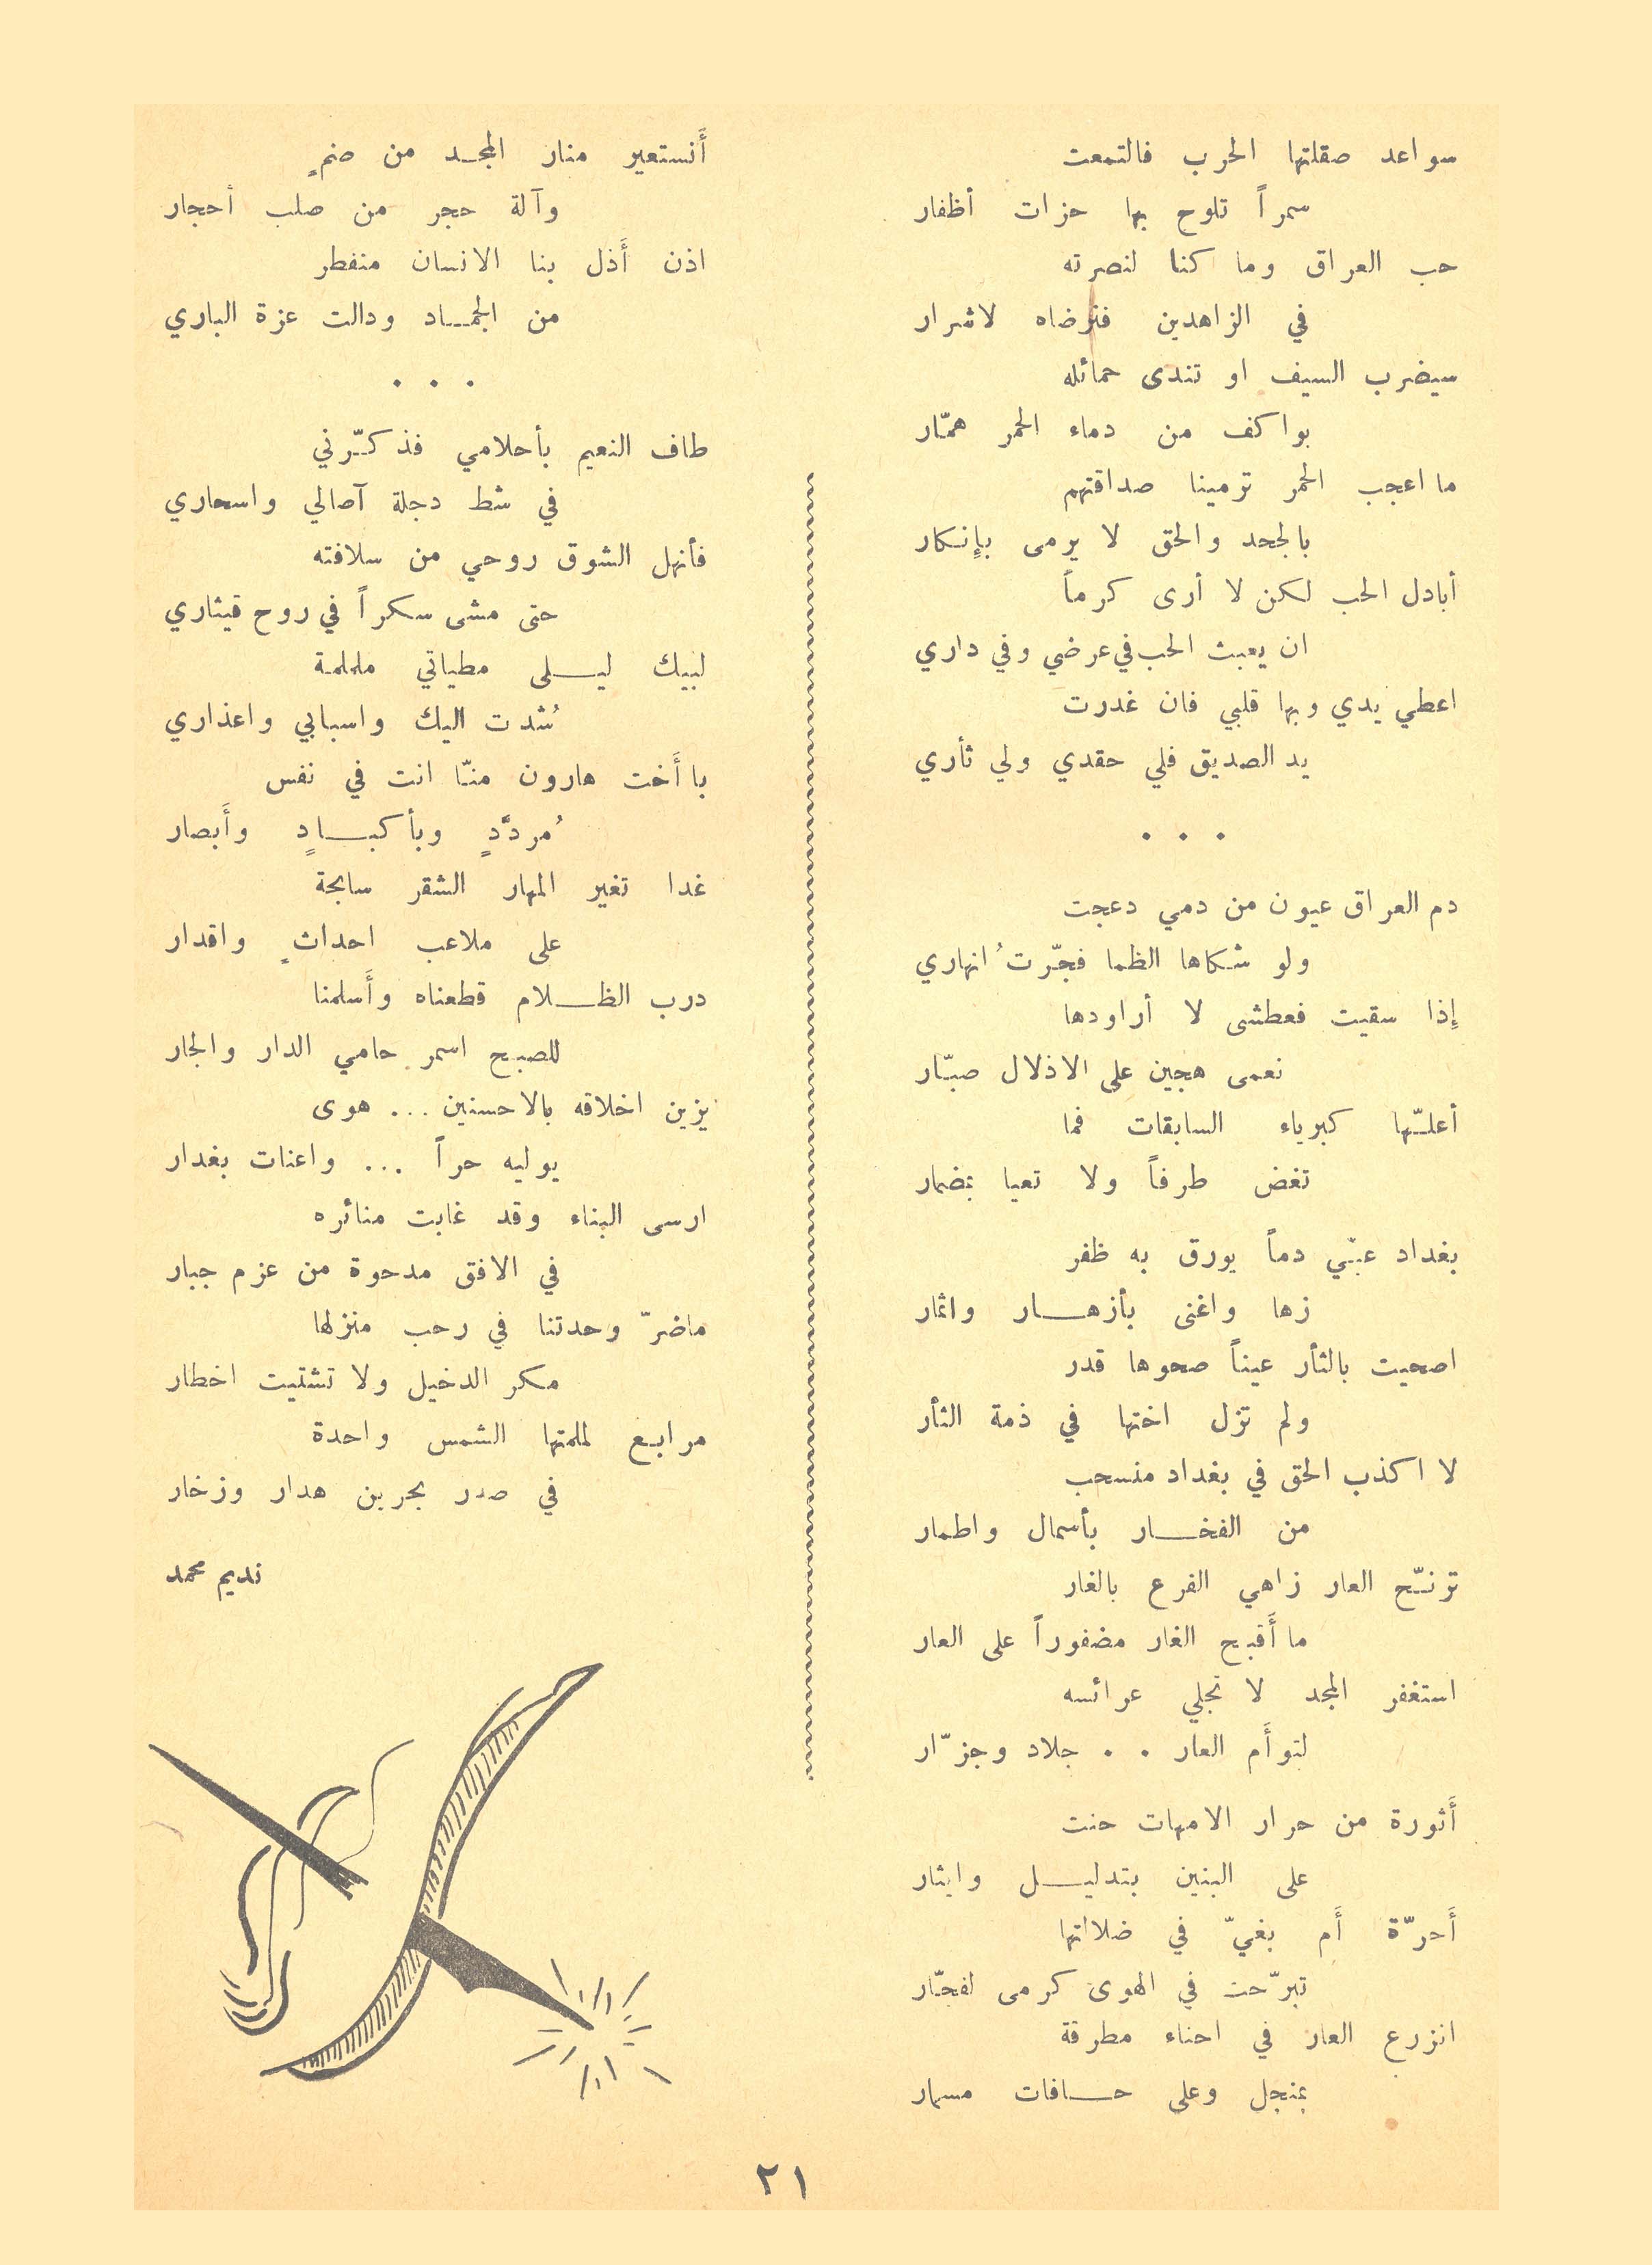 سواعد صقلتها الحرب فالتمعت
سمراً تلوح بها حزات أظفار
حب العراق وما كنا لنصرته
في الزاهدين فنرضاه لاشرار
سيضرب السيف او تندى حمائله
بواكف من دماء الحمر همّار
ما اعجب الحمر ترمينا صداقتهم
بالجحد والحق لا يرمى بإنكار
أبادل الحب لكن لا أرى كرماً
ان يعبث الحب في عرضي وفي داري
اعطي يدي وبها قلبي فان غدرت
يد الصديق فلي حقدي ولي ثأري
. . .
دم العراق عيون من دمي دعجت
ولو شكاها الظما فجّرتُ انهاري
إذا سقيت فعطشى لا أراودها
نعمى هجين على الاذلال صبّار
أعلـّها كبرياء السابقات فما
تغض طرفاً ولا تعيا بمضمار
بغداد عبّي دماً يورق به ظفر
زها واغنى بأزهـــار واثمار
اصحيت بالثأر عيناً صحوها قدر
ولم تزل اختها في ذمة الثأر
لا اكذب الحق في بغداد منسحب
من الفخـــار بأسمال واطمار
ترنـّح العار زاهي الفرع بالغار
ما أَقبح الغار مضفوراً على العار
استغفر المجد لا تجلي عرائسه
لتوأَم العار . . جلاد وجزّار
أَثورة من حرار الامهات حنت
على البنين بتدليـــل وايثار
أَحرّة أَم بغيّ في ضلالتها
تبرّحت في الهوى كرمى لفجّار
انزرع العار في احناء مطرقة
بمنجل وعلى حـــافات مسمار
أَنستعير منار المجـــد من صنمٍ
وآلة حجر من صلب أحجار
اذن أَذل بنا الانسان منفطر
من الجمـــاد ودالت عزة الباري
. . .
طاف النعيم بأحلامي فذكـّرني
في شط دجلة آصالي واسحاري
فأنهل الشوق روحي من سلافته
حتى مشى سكراً في روح قيثاري
لبيك ليـــلى مطياتي ململمة
شُدت اليك واسبابي واعذاري
يا أَخت هارون منّا انت في نفس
مُردَّدٍ وبأكبـــادٍ وأَبصار
غدا تغير المهار الشقر سابحة
على ملاعب احداثٍ واقدار
درب الظـــلام قطعناه وأَسلمنا
للصبح اسمر حامي الدار والجار
يزين اخلاقه بالاحسنين ... هوى
يوليه حراً ... واعنات بغدار
ارسى البناء وقد غابت منائره
في الافق مدحوة من عزم جبار
ماضرّ وحدتنا في رحب منزلها
مكر الدخيل ولا تشتيت اخطار
مرابع لملمتها الشمس واحدة
في صدر بحرين هدار وزخار
نديم محمد
٢١